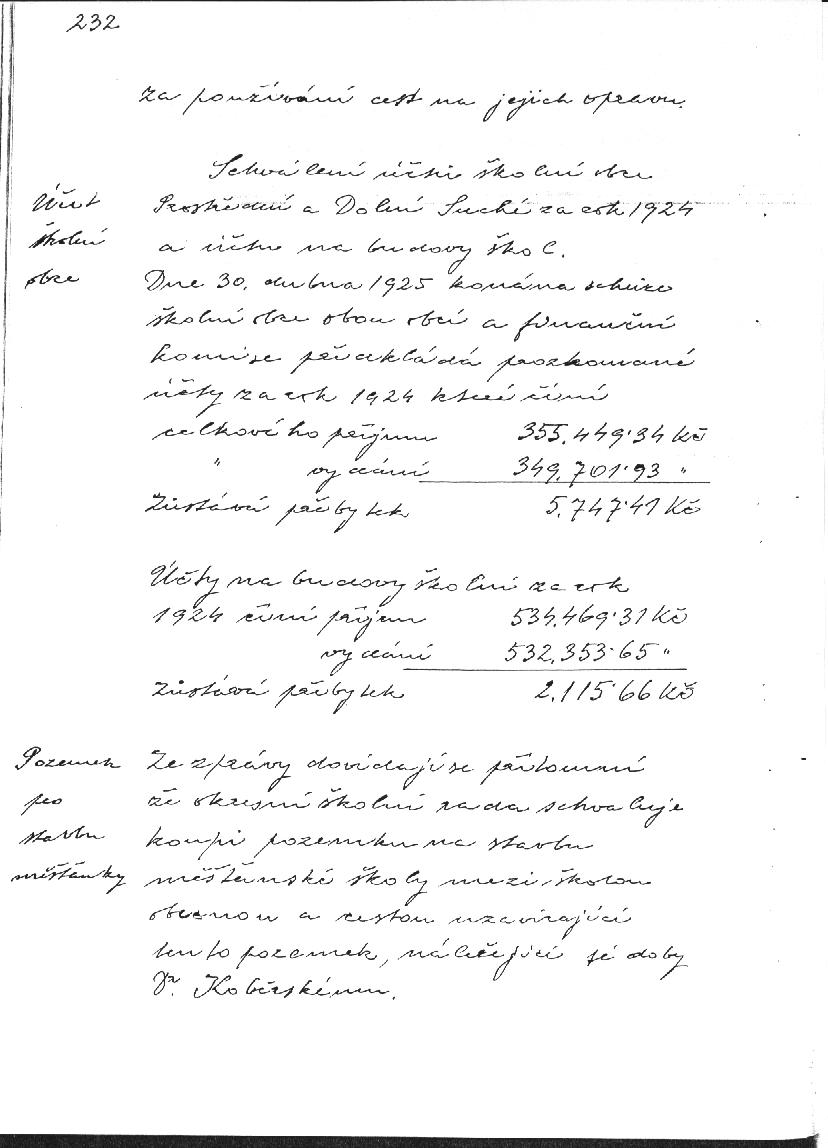 232
za používání cest na jejich opravu.
Schválení účtu školní obce
Účet Prostřední a Dolní Suché za rok 1924
školní a účtu na budovy škol.
obce Dne 30. dubna 1925 konána schůze
školní obce obou obcí a finanční
komise předkládá prozkoumané
účty za rok 1924 které činí
celkového příjmu 355.449·34 Kč
" vydání 349.701·93 "
Zůstává přebytek 5.747·41 Kč
Účty na budovy školní za rok
1924 činí příjem 534.469·31 Kč
vydání 532.353·65 "
zůstává přebytek 2.115·66 Kč
Pozemek Ze zprávy dovídají se přítomní
pro že okresní školní rada schvaluje
stavbu koupi pozemku na stavbu
měšťanky měšťanské školy mezi školou
obecnou a cestou uzavírající
tento pozemek, náležející doby
Dr. Koběrskému.